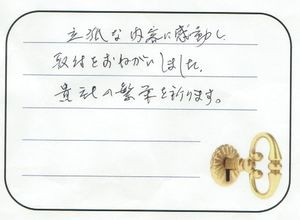 立派な内容に感動し
取付をおねがいしました。
貴社の繁栄を祈ります。